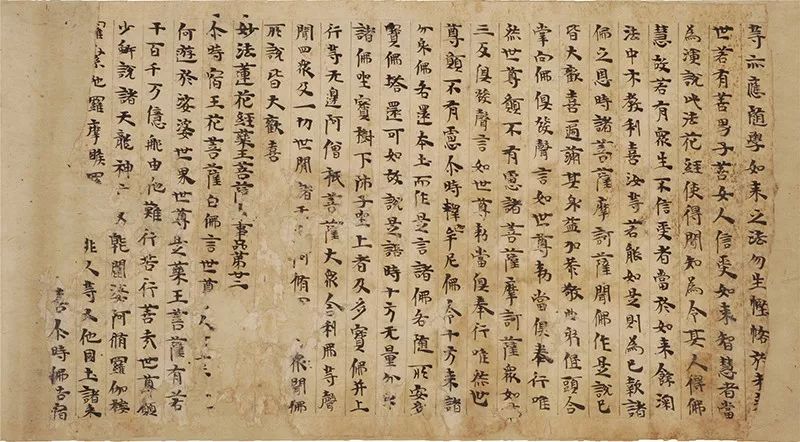 等亦應隨學如來之法勿生慳悋於
世若有善男子善女人信受如來智慧者當
為演說此法花經使得聞知為令其人得佛
慧故若有眾生不信受者當於如來餘深
法中示教利喜汝等若能如是則為已報諸
佛之恩時諸菩薩摩訶薩聞佛作是說已
皆大歡喜遍滿其身益加恭敬曲躬低頭合
掌向佛俱發聲言如世尊勑當俱奉行唯
然世尊願不有慮諸菩薩摩訶薩眾如
三反俱發聲言如世尊勑當俱奉行唯然世
尊願不有慮尒時釋牟尼佛令十方來諸
分身佛各還本土而作是言諸佛各隨所安多
寶佛塔還可如故說是語時十方无量分身
諸佛坐寶樹下師子座上者及多寶佛并上
行等无邊阿僧祇菩薩大眾舍利弗等聲
聞四眾及一切世間諸天阿脩眾聞佛
所說皆大歡喜
妙法蓮花經藥王菩薩事品第廿三
尒時宿王花菩薩白佛言世尊
何遊於娑婆世界世尊是藥王菩薩有若
干百千万億那由他難行苦行善哉世尊願
少解說諸天龍神又乾闥婆阿脩羅伽樓
羅緊他羅摩睺羅非人等又他國土諸來
喜尒時佛告宿